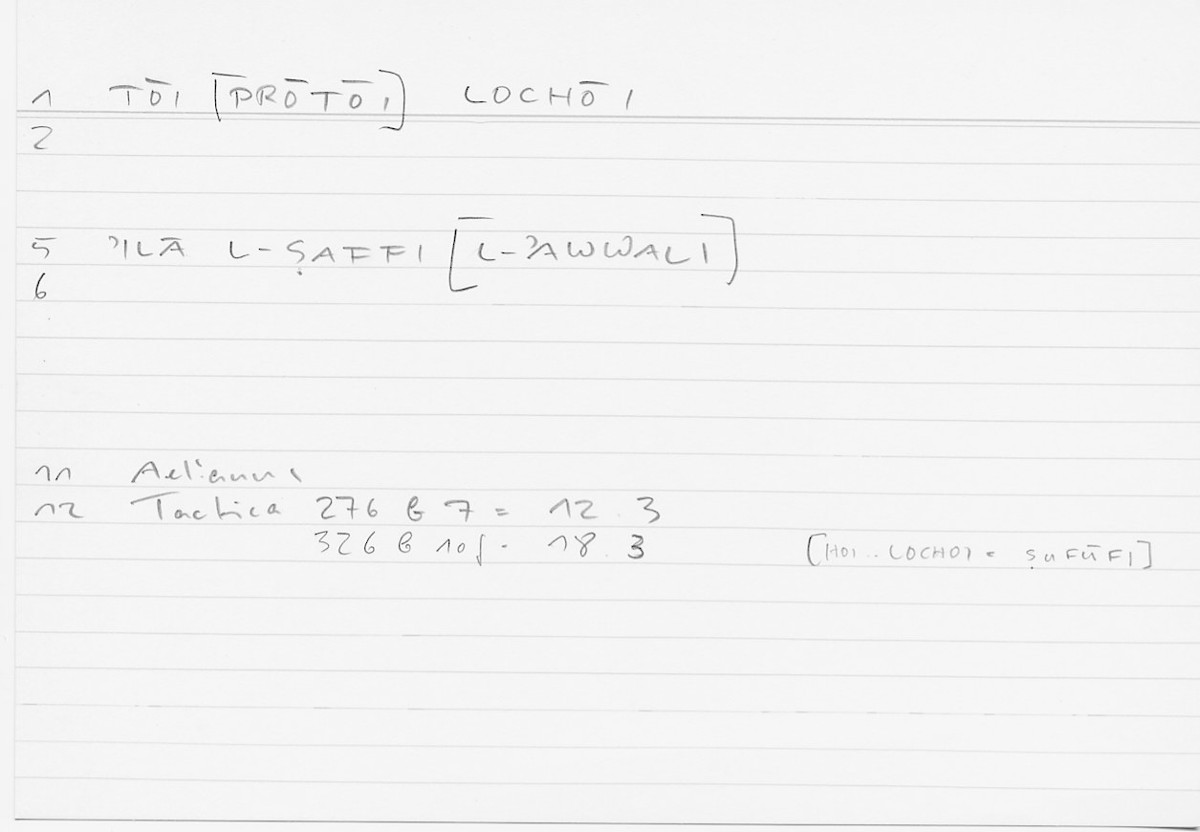 1 TŌI [PRŌTŌI] LOCHŌI
2
5 ʾILĀ L-ṢAFFI [L-ʾAWWALI]
6
11 Aelianus
12 Tactica 276 b 7 = 12.3
326 b 10f. = 18.3 [HOI .. LOCHOI = ṢUFŪFI]